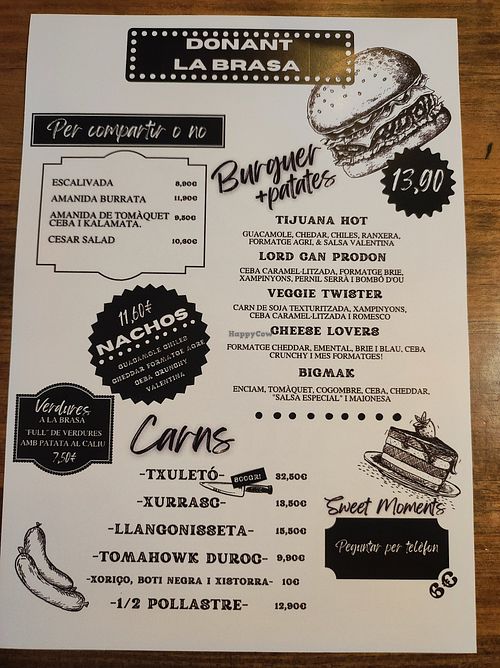 DONANT
LA BRASA
Per compartir o no
ESCALIVADA 8,90€
AMANIDA BURRATA 11,90€
AMANIDA DE TOMÀQUET 9,50€
CEBA I KALAMATA.
CESAR SALAD 10,60€
Burguer
+patates
13,90
TIJUANA HOT
GUACAMOLE, CHEDAR, CHILES, RANXERA,
FORMATGE AGRI, & SALSA VALENTINA
LORD CAN PRODON
CEBA CARAMEL·LITZADA, FORMATGE BRIE,
XAMPINYONS, PERNIL SERRÀ I BOMBÓ D'OU
VEGGIE TWISTER
CARN DE SOJA TEXTURITZADA, XAMPINYONS,
CEBA CARAMEL·LITZADA I ROMESCO
HappyCow
CHEESE LOVERS
FORMATGE CHEDDAR, EMENTAL, BRIE I BLAU, CEBA
CRUNCHY I MES FORMATGES!
BIGMAK
ENCIAM, TOMÀQUET, COGOMBRE, CEBA, CHEDDAR,
"SALSA ESPECIAL" I MAIONESA
11.60€
NACHOS
GUACAMOLE CHILED
CHEDDAR FORMATGE AGRE
CEBA CRUNCHY
VALENTINA
Verdures
A LA BRASA
"FULL" DE VERDURES
AMB PATATA AL CALIU
7,50€
Carns
-TXULETÓ- 800GR! 32,50€
-XURRASC- 13,50€
-LLANGONISSETA- 15,50€
-TOMAHOWK DUROC- 9,90€
-XORIÇO, BOTI NEGRA I XISTORRA- 10€
-1/2 POLLASTRE- 12,90€
Sweet Moments
Peguntar per telèfon
6€